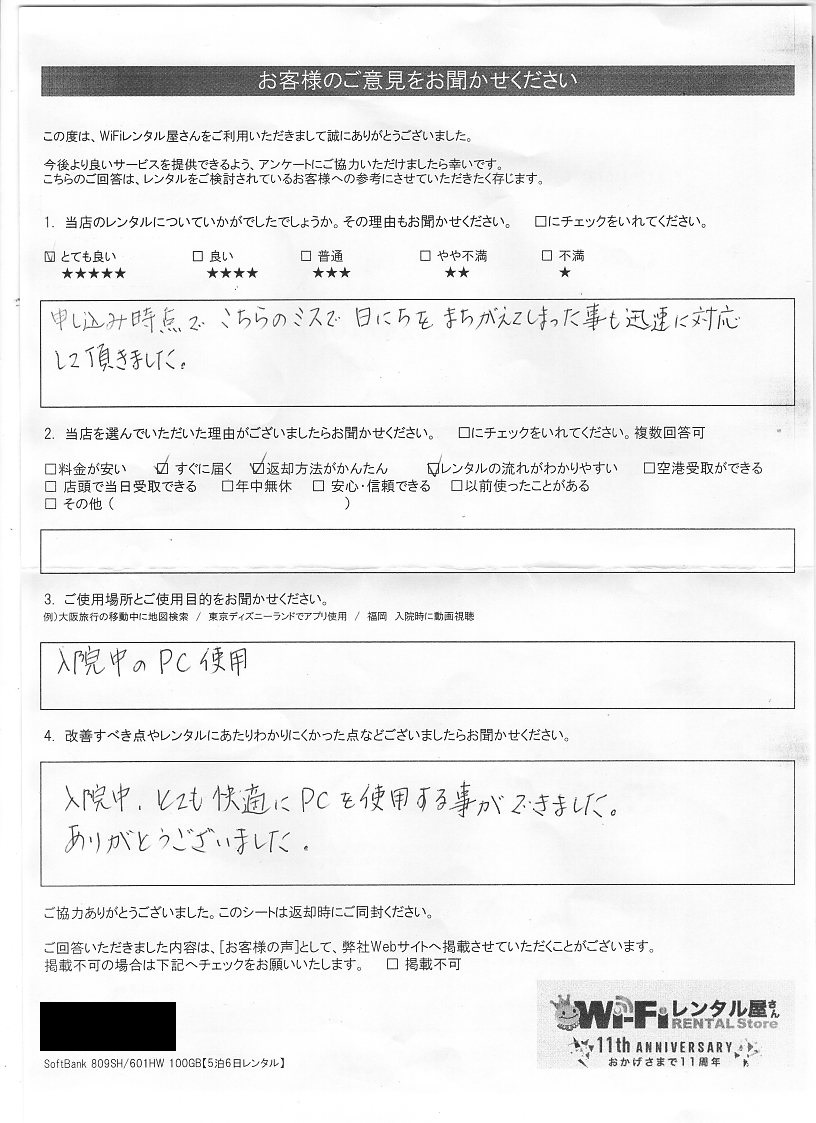 お客様のご意見をお聞かせください
この度は、WiFiレンタル屋さんをご利用いただきまして誠にありがとうございました。
今後より良いサービスを提供できるよう、アンケートにご協力いただけましたら幸いです。
こちらのご回答は、レンタルをご検討されているお客様への参考にさせていただきたく存じます。
1. 当店のレンタルについていかがでしたでしょうか。その理由もお聞かせください。 □にチェックをいれてください。
☑ とても良い □ 良い □ 普通 □ やや不満 □ 不満
★★★★★ ★★★★ ★★★ ★★ ★
申し込み時点で こちらのミスで 日にちを まちがえてしまった事も迅速に対応
して頂きました。
2. 当店を選んでいただいた理由がございましたらお聞かせください。 □にチェックをいれてください。複数回答可
□料金が安い ☑ すぐに届く ☑返却方法がかんたん ☑レンタルの流れがわかりやすい □空港受取ができる
□ 店頭で当日受取できる □年中無休 □ 安心・信頼できる □以前使ったことがある
□ その他 ( )
3. ご使用場所とご使用目的をお聞かせください。
例)大阪旅行の移動中に地図検索 / 東京ディズニーランドでアプリ使用 / 福岡 入院時に動画視聴
入院中の PC 使用
4. 改善すべき点やレンタルにあたりわかりにくかった点などございましたらお聞かせください。
入院中、とても快適にPCを使用する事ができました。
ありがとうございました。
ご協力ありがとうございました。このシートは返却時にご同封ください。
ご回答いただきました内容は、[お客様の声]として、弊社Webサイトへ掲載させていただくことがございます。
掲載不可の場合は下記へチェックをお願いいたします。 □ 掲載不可
Wi-Fiレンタル屋さん
RENTAL Store
11th ANNIVERSARY
おかげさまで11周年
SoftBank 809SH/601HW 100GB【5泊6日レンタル】